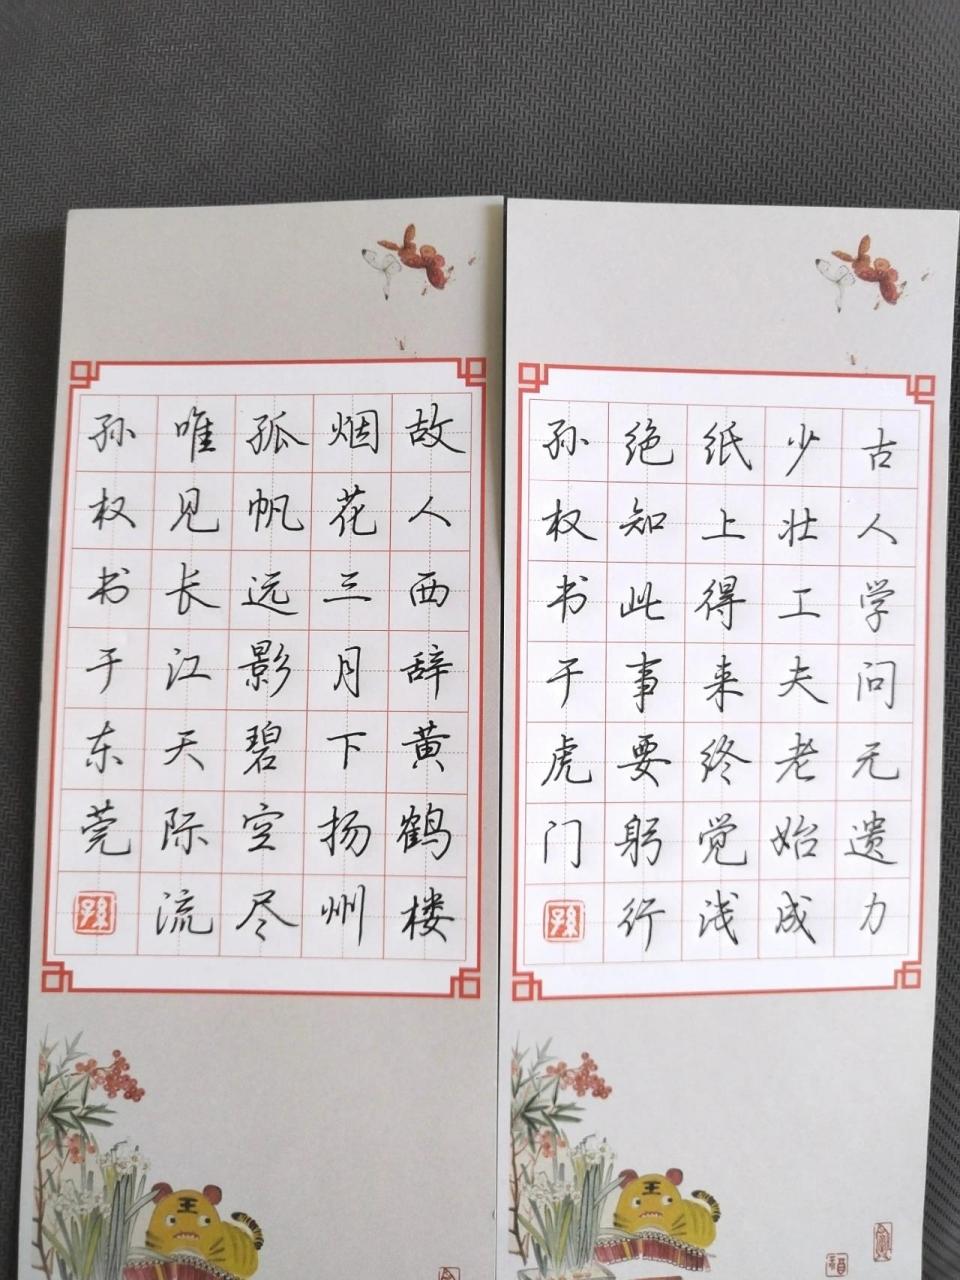 古人学问无遗力
少壮工夫老始成
纸上得来终觉浅
绝知此事要躬行
孙权书于虎门
孫
王
故人西辞黄鹤楼
烟花三月下扬州
孤帆远影碧空尽
唯见长江天际流
孙权书于东莞
孫
王